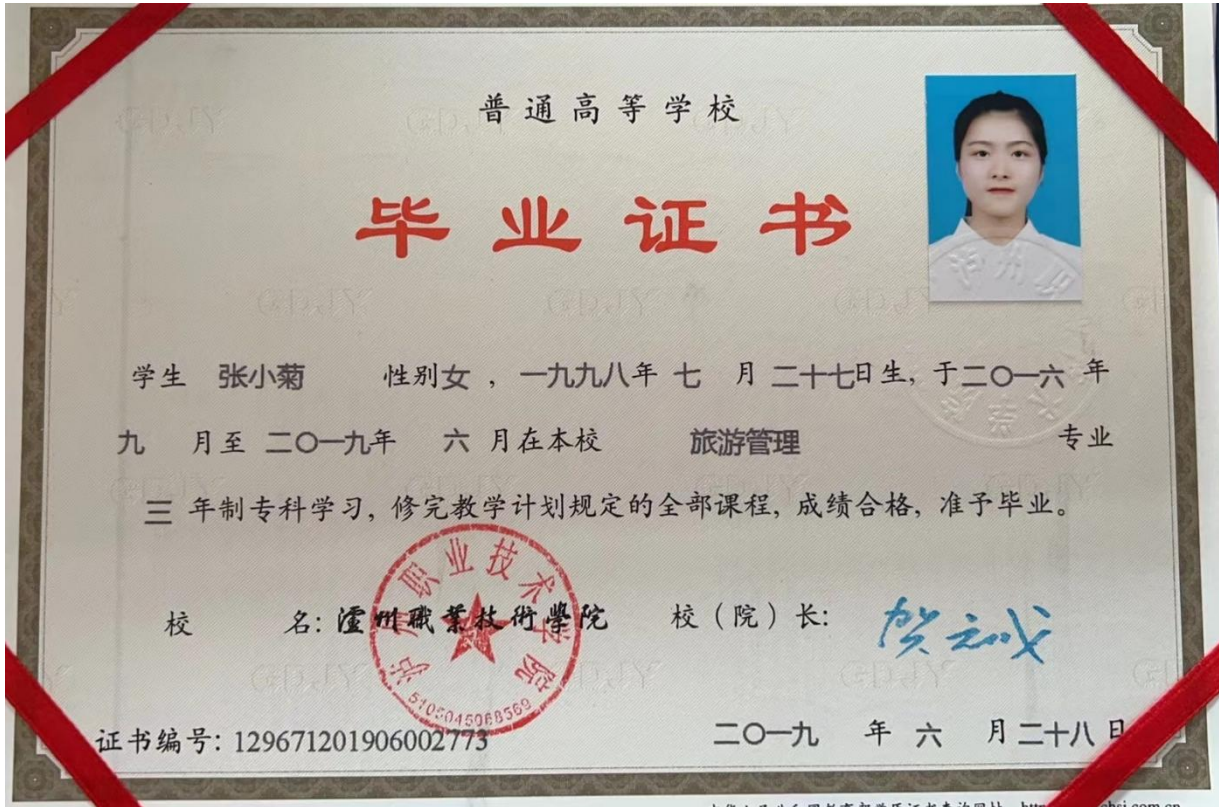 普通高等学校
毕业证书
学生 张小菊 性别女，一九九八年 七 月 二十七日生，于二〇一六 年
九 月至 二〇一九年 六 月在本校 旅游管理 专业
三 年制专科学习，修完教学计划规定的全部课程，成绩合格，准予毕业。
校 名：瀘州職業技術學院 校（院）长：贺元成
泸州职业技术学院
5105045088569
证书编号：129671201906002773 二〇一九 年 六 月 二十八 日